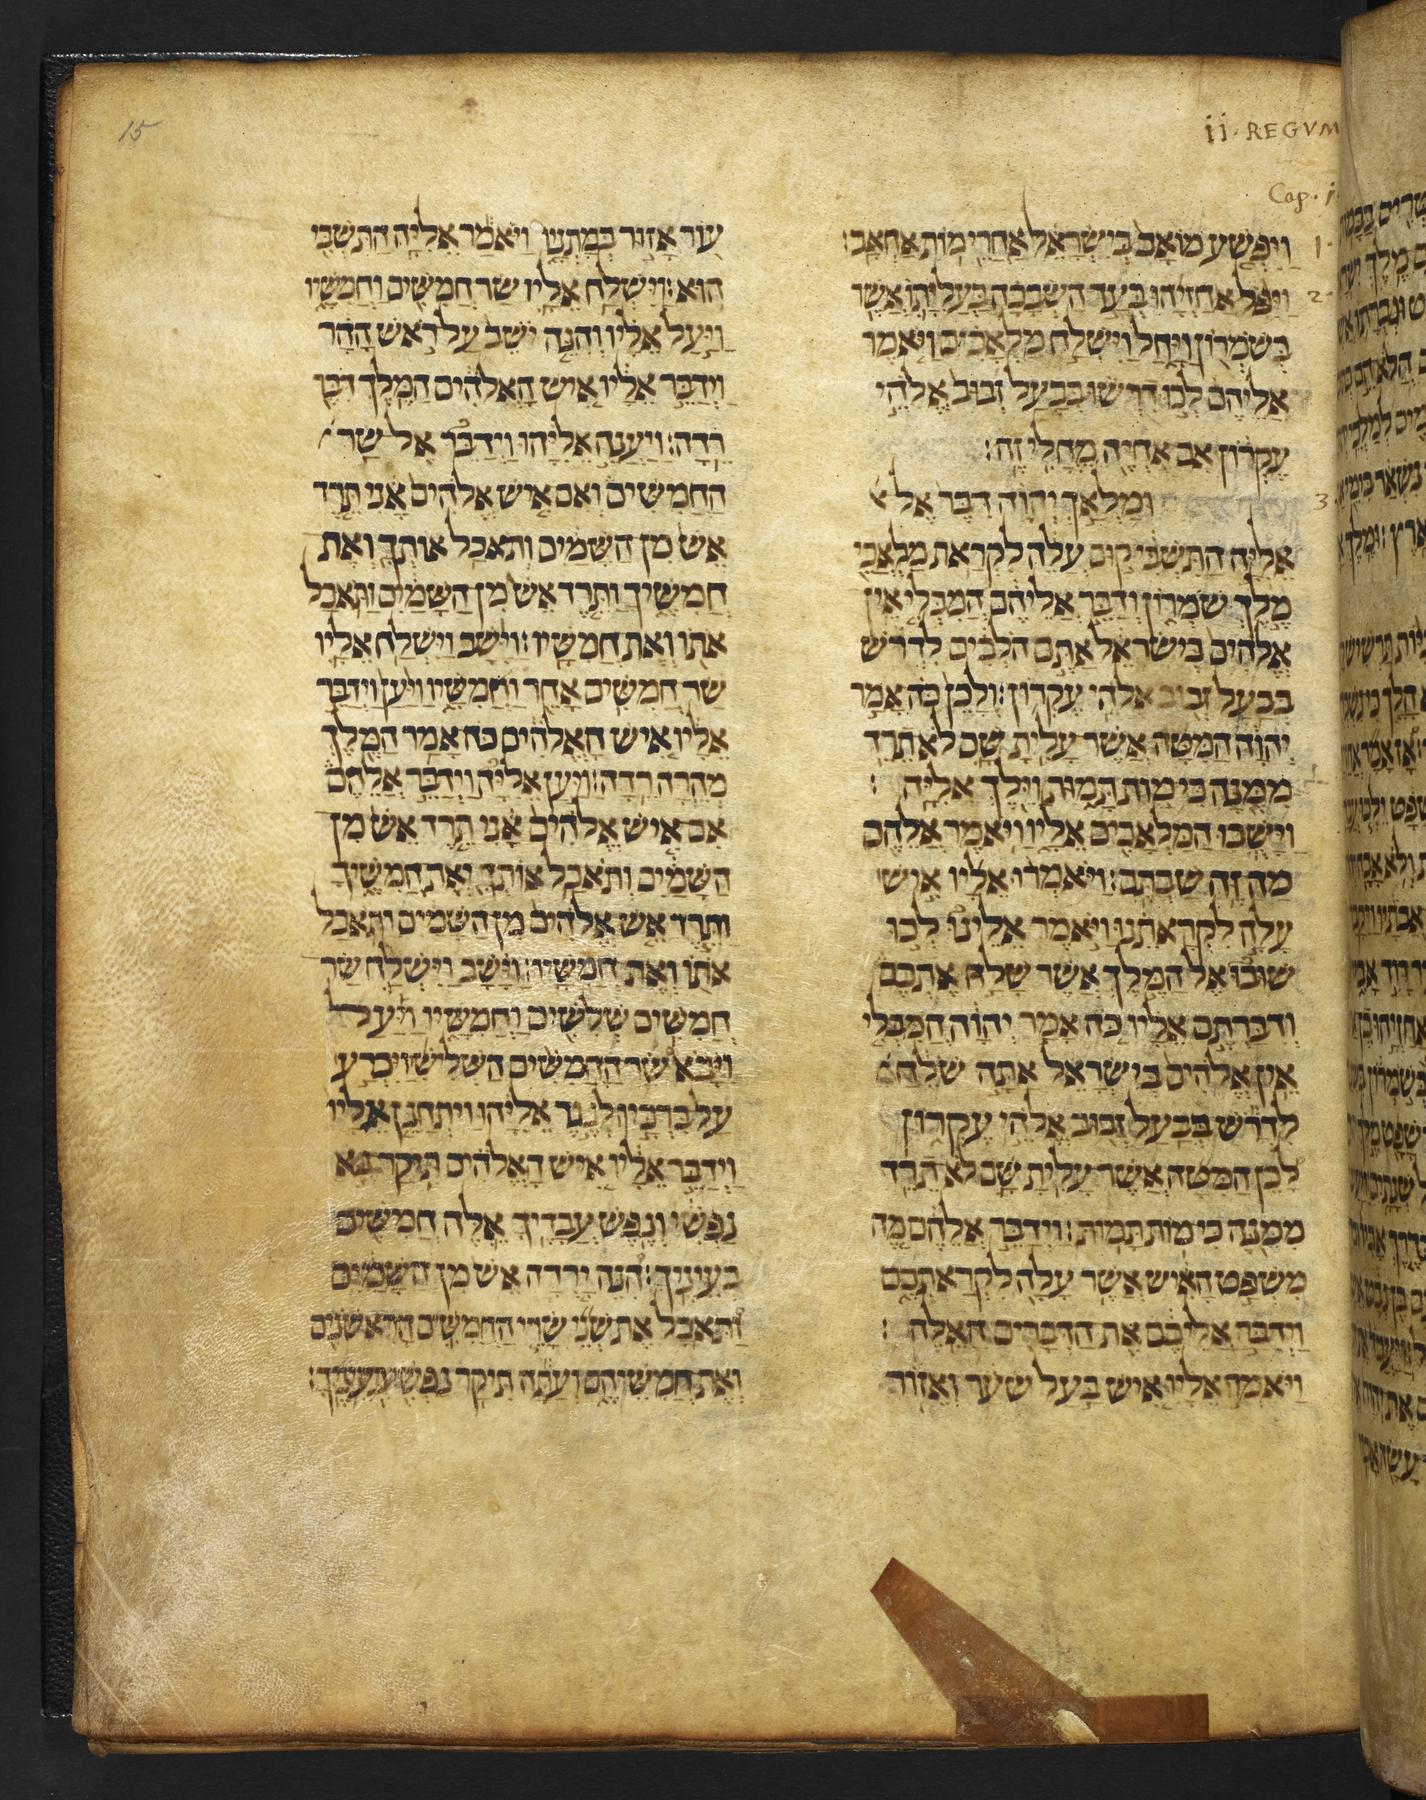 15
ii · REGVM
Cap. i.
1
וַיִּפְשַׁע מוֹאָב בְּיִשְׂרָאֵל אַחֲרֵי מוֹת אַחְאָב׃
2
וַיִּפֹּל אֲחַזְיָהוּ בְּעַד הַשְּׂבָכָה בַּעֲלִיָּתוֹ אֲשֶׁר
בְּשֹׁמְרוֹן וַיָּחַל וַיִּשְׁלַח מַלְאָכִים וַיֹּאמֶר
אֲלֵיהֶם לְכוּ דִרְשׁוּ בְּבַעַל זְבוּב אֱלֹהֵי
עֶקְרוֹן אִם אֶחְיֶה מֵחֳלִי זֶה׃
3
וּמַלְאַךְ יְהוָה דִּבֶּר אֶל
אֵלִיָּה הַתִּשְׁבִּי קוּם עֲלֵה לִקְרַאת מַלְאֲכֵי
מֶלֶךְ שֹׁמְרוֹן וְדַבֵּר אֲלֵיהֶם הֲמִבְּלִי אֵין
אֱלֹהִים בְּיִשְׂרָאֵל אַתֶּם הֹלְכִים לִדְרֹשׁ
בְּבַעַל זְבוּב אֱלֹהֵי עֶקְרוֹן׃ וְלָכֵן כֹּה אָמַר
יְהוָה הַמִּטָּה אֲשֶׁר עָלִיתָ שָּׁם לֹא תֵרֵד
מִמֶּנָּה כִּי מוֹת תָּמוּת וַיֵּלֶךְ אֵלִיָּה׃
וַיָּשׁוּבוּ הַמַּלְאָכִים אֵלָיו וַיֹּאמֶר אֲלֵהֶם
מַה זֶּה שַׁבְתֶּם׃ וַיֹּאמְרוּ אֵלָיו אִישׁ
עָלָה לִקְרָאתֵנוּ וַיֹּאמֶר אֵלֵינוּ לְכוּ
שׁוּבוּ אֶל הַמֶּלֶךְ אֲשֶׁר שָׁלַח אֶתְכֶם
וְדִבַּרְתֶּם אֵלָיו כֹּה אָמַר יְהוָה הֲמִבְּלִי
אֵין אֱלֹהִים בְּיִשְׂרָאֵל אַתָּה שֹׁלֵחַ
לִדְרֹשׁ בְּבַעַל זְבוּב אֱלֹהֵי עֶקְרוֹן
לָכֵן הַמִּטָּה אֲשֶׁר עָלִיתָ שָּׁם לֹא תֵרֵד
מִמֶּנָּה כִּי מוֹת תָּמוּת׃ וַיְדַבֵּר אֲלֵהֶם מֶה
מִשְׁפַּט הָאִישׁ אֲשֶׁר עָלָה לִקְרַאתְכֶם
וַיְדַבֵּר אֲלֵיכֶם אֶת הַדְּבָרִים הָאֵלֶּה׃
וַיֹּאמְרוּ אֵלָיו אִישׁ בַּעַל שֵׂעָר וְאֵזוֹר
עוֹר אָזוּר בְּמָתְנָיו וַיֹּאמַר אֵלִיָּה הַתִּשְׁבִּי
הוּא׃ וַיִּשְׁלַח אֵלָיו שַׂר חֲמִשִּׁים וַחֲמִשָּׁיו
וַיַּעַל אֵלָיו וְהִנֵּה יֹשֵׁב עַל רֹאשׁ הָהָר
וַיְדַבֵּר אֵלָיו אִישׁ הָאֱלֹהִים הַמֶּלֶךְ דִּבֶּר
רֵדָה׃ וַיַּעֲנֶה אֵלִיָּהוּ וַיְדַבֵּר אֶל שַׂר
הַחֲמִשִּׁים וְאִם אִישׁ אֱלֹהִים אָנִי תֵּרֶד
אֵשׁ מִן הַשָּׁמַיִם וְתֹאכַל אוֹתְךָ וְאֶת
חֲמִשֶּׁיךָ וַתֵּרֶד אֵשׁ מִן הַשָּׁמַיִם וַתֹּאכַל
אֹתוֹ וְאֶת חֲמִשָּׁיו׃ וַיָּשָׁב וַיִּשְׁלַח אֵלָיו
שַׂר חֲמִשִּׁים אַחֵר וַחֲמִשָּׁיו וַיַּעַן וַיְדַבֵּר
אֵלָיו אִישׁ הָאֱלֹהִים כֹּה אָמַר הַמֶּלֶךְ
מְהֵרָה רֵדָה׃ וַיַּעַן אֵלִיָּה וַיְדַבֵּר אֲלֵהֶם
אִם אִישׁ אֱלֹהִים אָנִי תֵּרֶד אֵשׁ מִן
הַשָּׁמַיִם וְתֹאכַל אוֹתְךָ וְאֶת חֲמִשֶּׁיךָ
וַתֵּרֶד אֵשׁ אֱלֹהִים מִן הַשָּׁמַיִם וַתֹּאכַל
אֹתוֹ וְאֶת חֲמִשָּׁיו׃ וַיָּשָׁב וַיִּשְׁלַח שַׂר
חֲמִשִּׁים שְׁלִשִׁים וַחֲמִשָּׁיו וַיַּעַל
וַיָּבֹא שַׂר הַחֲמִשִּׁים הַשְּׁלִישִׁי וַיִּכְרַע
עַל בִּרְכָּיו לְנֶגֶד אֵלִיָּהוּ וַיִּתְחַנֵּן אֵלָיו
וַיְדַבֵּר אֵלָיו אִישׁ הָאֱלֹהִים תִּיקַר נָא
נַפְשִׁי וְנֶפֶשׁ עֲבָדֶיךָ אֵלֶּה חֲמִשִּׁים
בְּעֵינֶיךָ׃ הִנֵּה יָרְדָה אֵשׁ מִן הַשָּׁמַיִם
וַתֹּאכַל אֶת שְׁנֵי שָׂרֵי הַחֲמִשִּׁים הָרִאשֹׁנִים
וְאֶת חֲמִשֵּׁיהֶם וְעַתָּה תִּיקַר נַפְשִׁי בְּעֵינֶיךָ׃